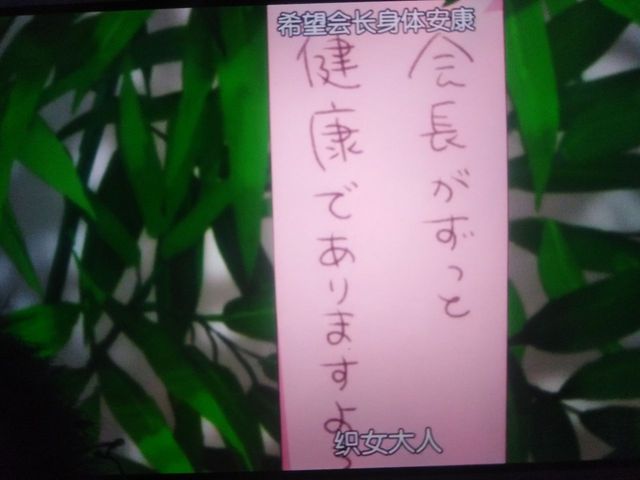 希望会长身体安康
会長がずっと
健康でありますよ
织女大人